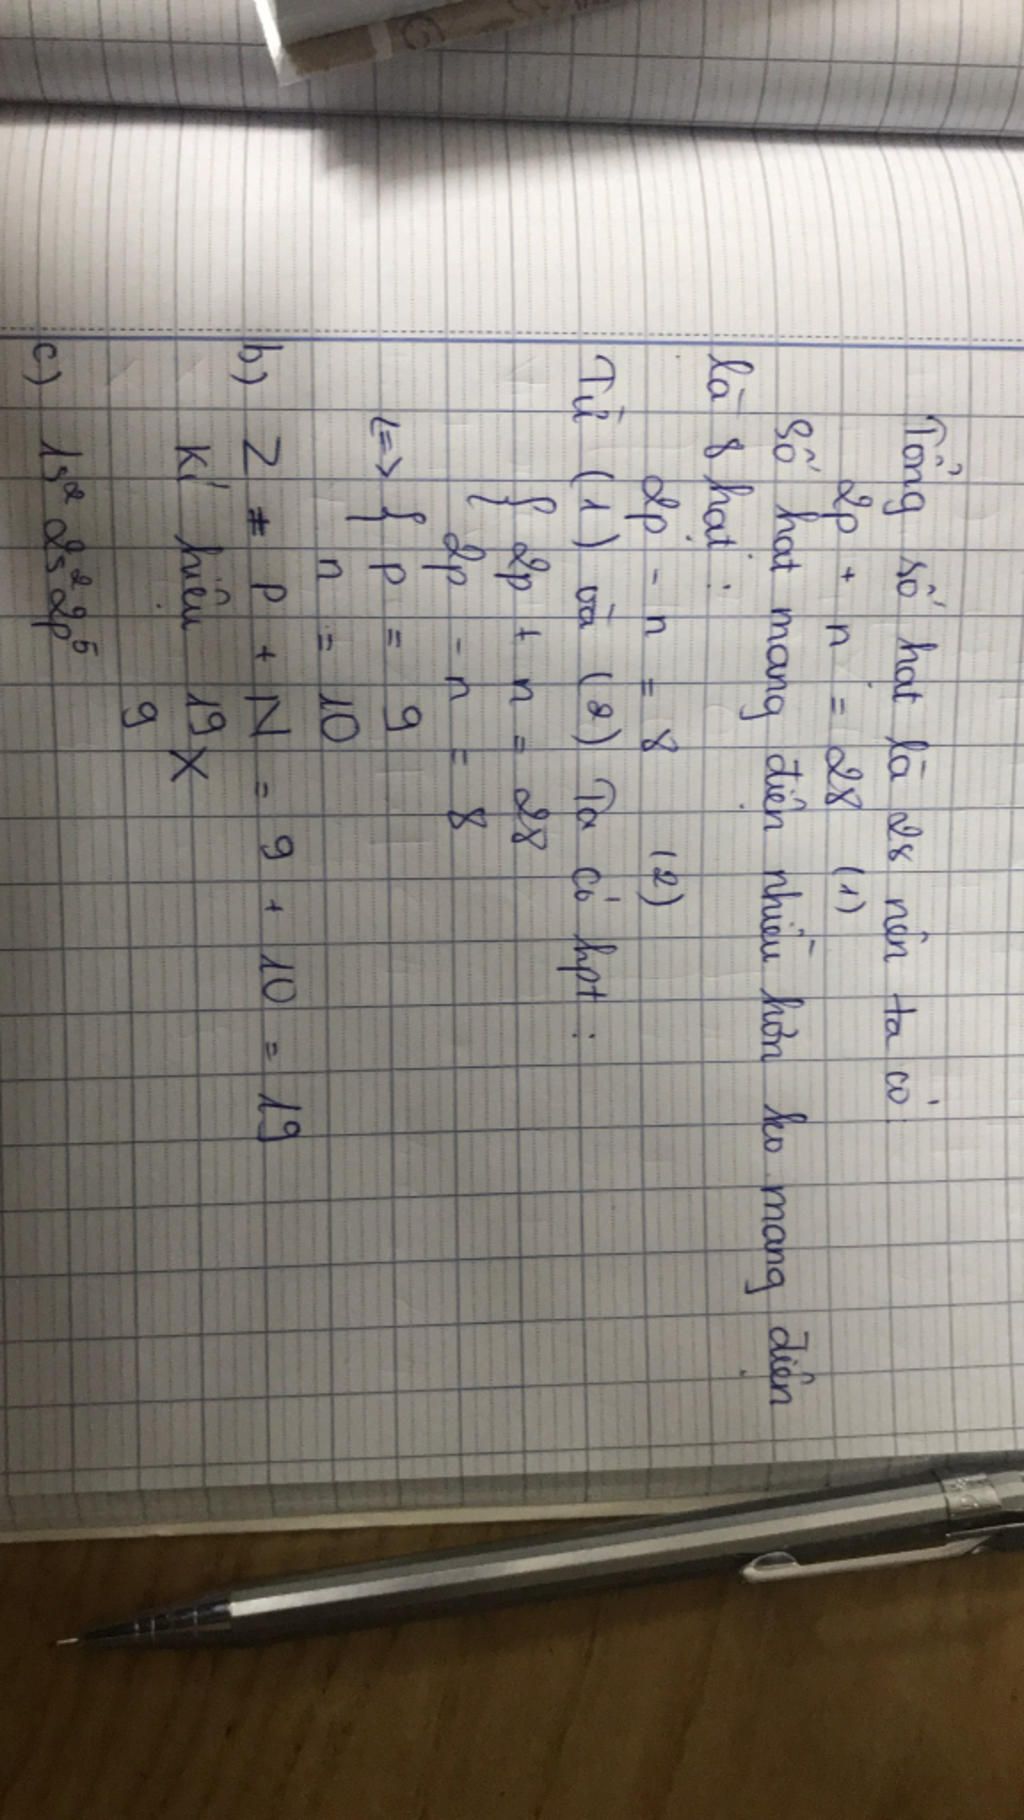 Tổng số hạt là 28 nên ta có:
2p + n = 28 (1)
Số hạt mang điện nhiều hơn ko mang điện
là 8 hạt:
2p - n = 8 (2)
Từ (1) và (2) Ta có hpt:
{ 2p + n = 28
{ 2p - n = 8
<=> { p = 9
n = 10
b) Z ≠ P + N = 9 + 10 = 19
kí hiệu 19 X
9
c) 1s² 2s² 2p⁵